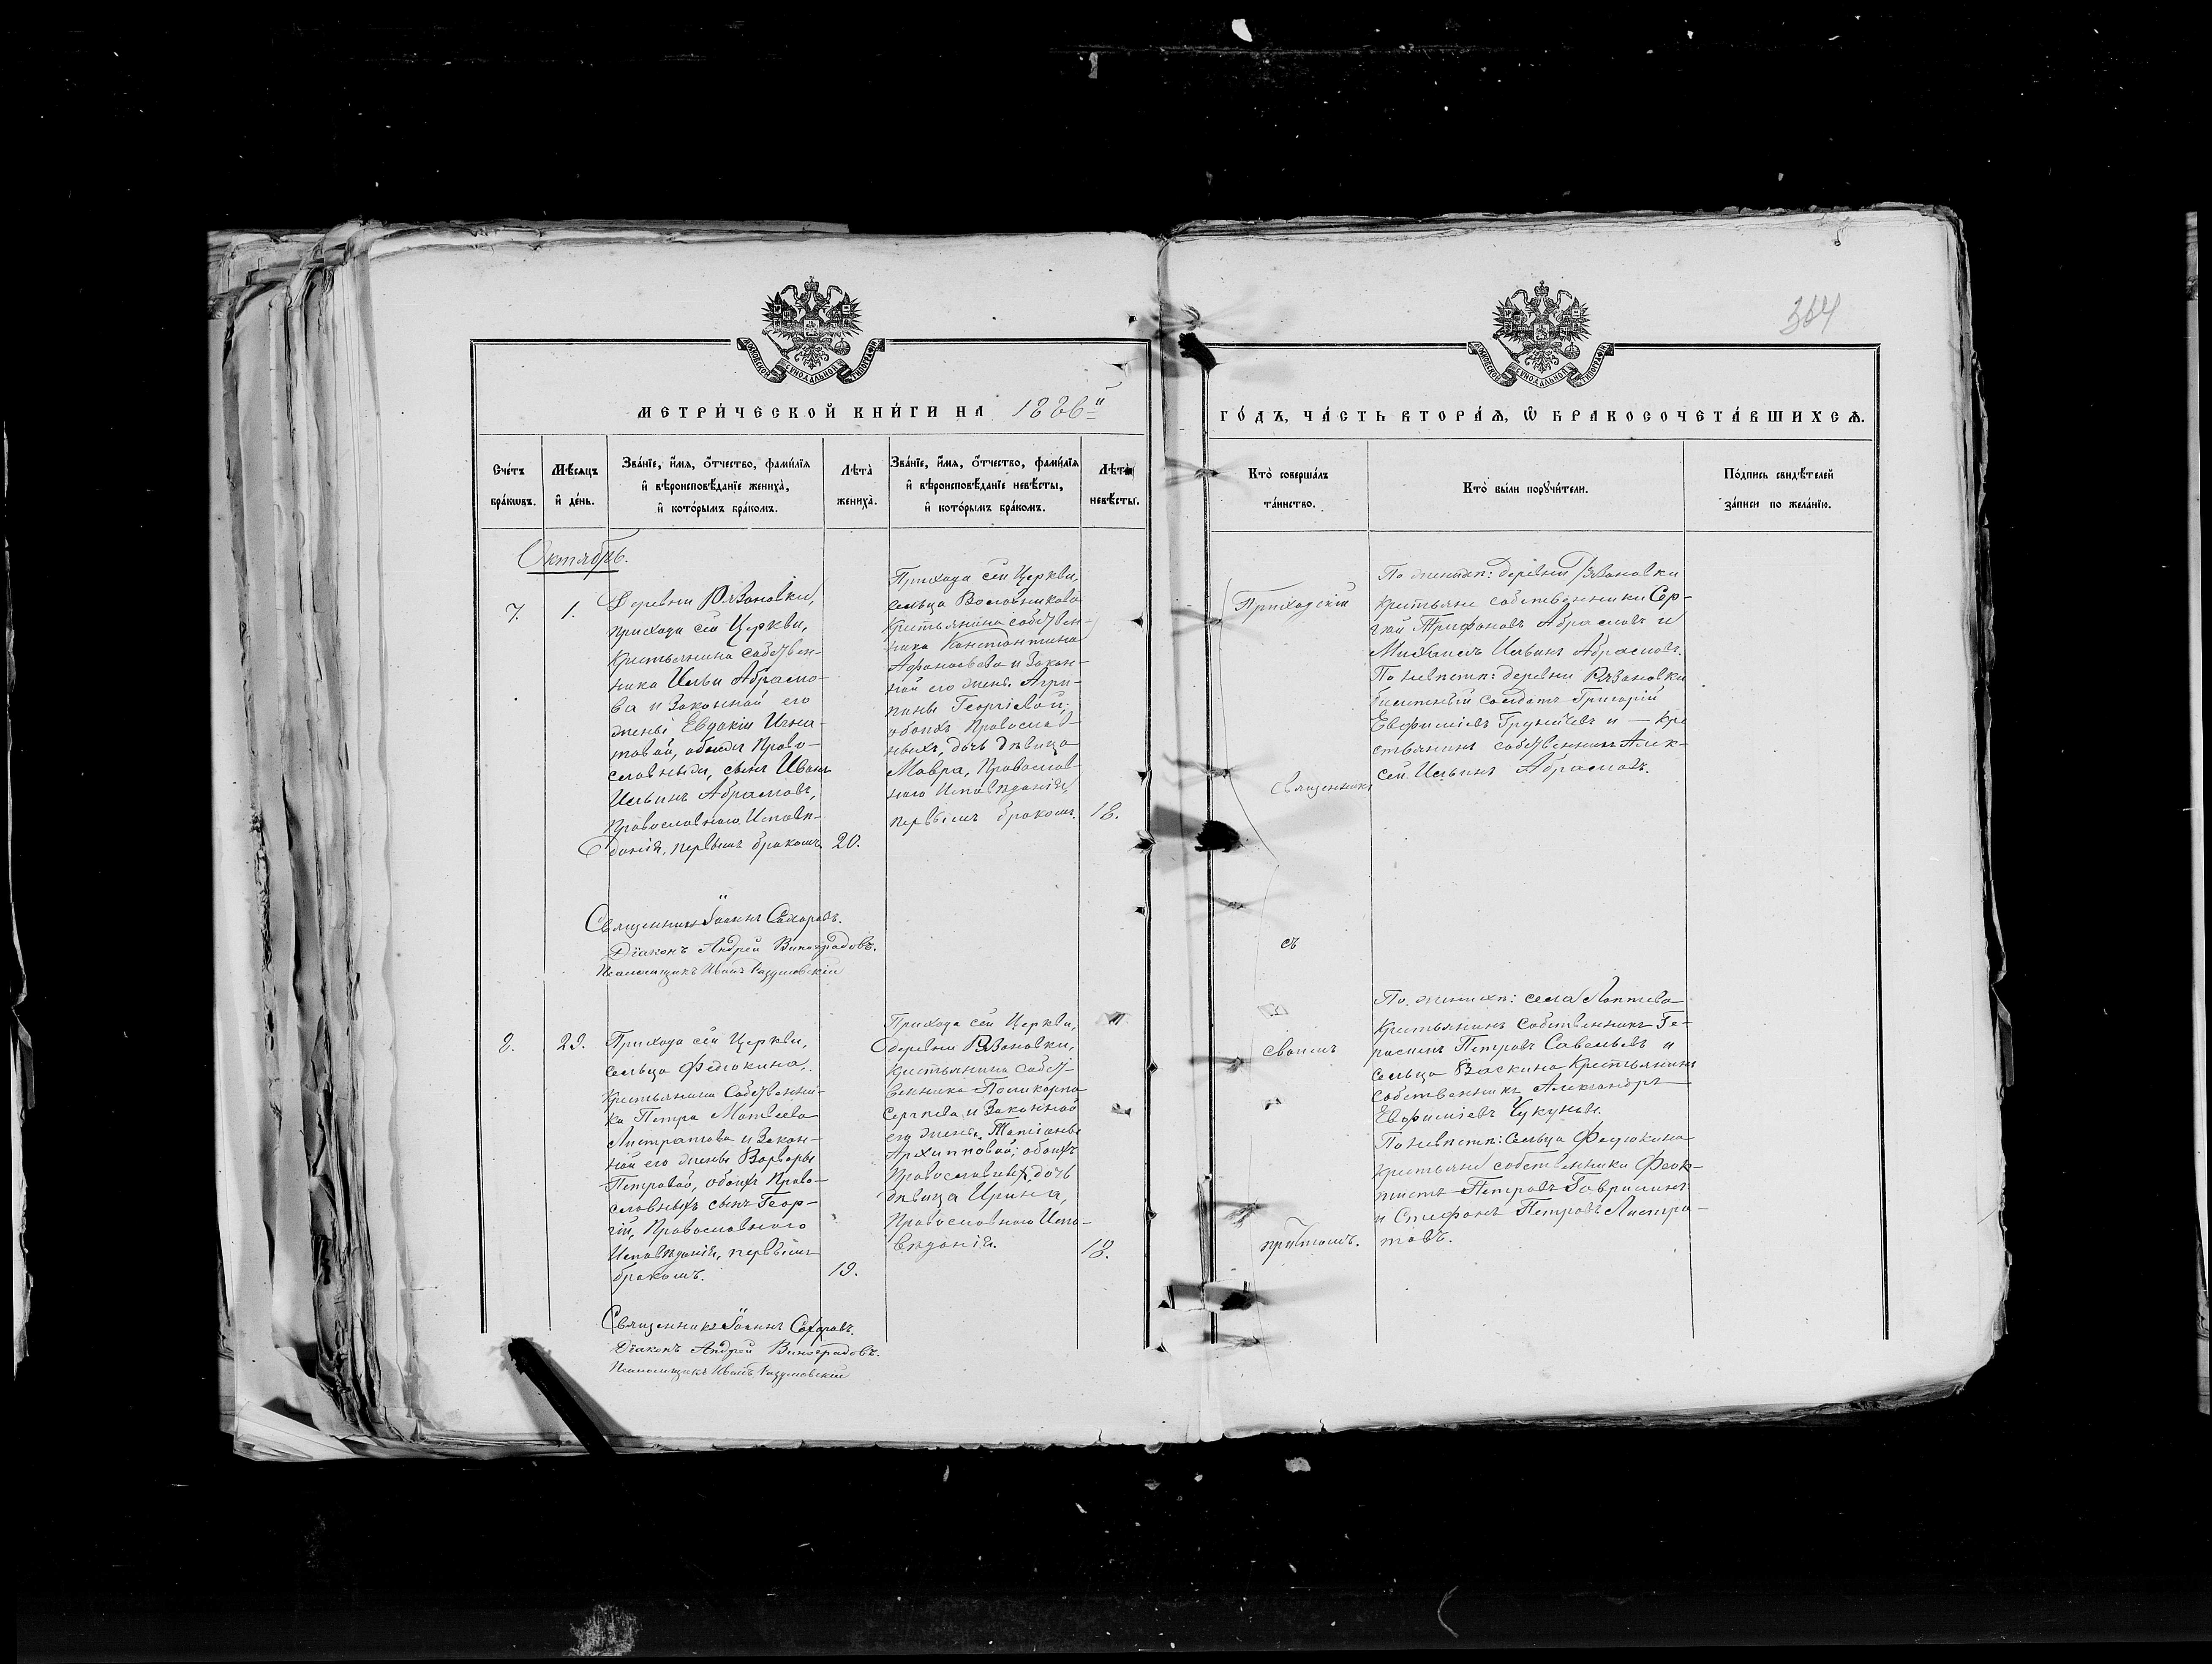 364
МОСКОВСКОЙ СѴНОДАЛЬНОЙ ТИПОГРАФІИ
МОСКОВСКОЙ СѴНОДАЛЬНОЙ ТИПОГРАФІИ
МЕТРИ́ЧЕСКОЙ КНИ́ГИ НА 1886й
ГО́ДЪ, ЧА́СТЬ ВТОРА́Ѧ, Ѽ БРАКОСОЧЕТА́ВШИХСѦ.
Сче́тъ
бра́кѡвъ.
Мѣ́сяцъ
и҆ де́нь.
Зва́нїе, и҆́мѧ, ѻ҆́тчество, фами́лїѧ
и҆ вѣроисповѣ́данїе жениха̀,
и҆ кото́рымъ бра́комъ.
Лѣта̀
жениха̀.
Зва́нїе, и҆́мѧ, ѻ҆́тчество, фами́лїѧ
и҆ вѣроисповѣ́данїе невѣ́сты,
и҆ кото́рымъ бра́комъ.
Лѣта̀
невѣ́сты.
Кто̀ соверша́лъ
та́инство.
Кто̀ бы́ли порꙋчи́тели.
По́дпись свидѣ́телей
за́писи по жела́нїю.
Октябрь.
7.
1.
Деревни Рязановки,
прихода сей Церкви,
Крестьянина собствен-
ника Ильи Абрамо-
ва и Законной его
жены Евдокіи Игна-
товой, обоихъ Право-
славныхъ, сынъ Иванъ
Ильинъ Абрамовъ,
Православнаго Исповѣ-
данія, первымъ бракомъ.
20.
Прихода сей Церкви,
сельца
Крестьянина собствен-
ника Константина
Афанасьева и Закон-
ной его жены Агри-
пины Георгіевой,
обоихъ Православ-
ныхъ, дочь дѣвица
Мавра, Православ-
наго Исповѣданія,
первымъ бракомъ.
18.
Приходскій
Священникъ
съ
своимъ
причтомъ.
По женихѣ: деревни Рязановки
крестьяне собственники Сер-
гѣй Трифоновъ Абрамовъ и
Михаилъ Ильинъ Абрамовъ.
По невѣстѣ: деревни Рязановки
билетный солдатъ Григорій
Евфиміевъ и — кре
стьянинъ собственникъ Алек-
сѣй Ильинъ Абрамовъ.
Священникъ Іоаннъ Сахаровъ.
Діаконъ Андрей Виноградовъ.
Псаломщикъ Иванъ Разумовскій
8.
29.
Прихода сей Церкви,
сельца Федюкина,
Крестьянина Собственни-
ка Петра Матвеева
Листратова и Закон-
ной его жены Варвары
Петровой, обоихъ Право-
славныхъ сынъ Геор-
гій, Православнаго
Исповѣданія, первымъ
бракомъ.
19.
Прихода сей Церкви,
деревни Рязановки,
крестьянина собст-
венника Поликарпа
Сергѣева и Законной
его жены Татіаны
Архипповой; обоихъ
Православныхъ, дочь
дѣвица Ирина,
Православнаго Испо-
вѣданія.
18.
По женихѣ: села Лаптева
Крестьянинъ Собственникъ Ге-
расимъ Петровъ Савельевъ и
сельца Васкина Крестьянинъ
собственникъ Александръ
Евфиміевъ
По невѣстѣ: Сельца Федюкина
крестьяне собственники Феок-
тистъ Петровъ Гаврилинъ
и Стефанъ Петровъ Листра-
товъ.
Священникъ Іоаннъ Сахаровъ.
Діаконъ Андрей Виноградовъ.
Псаломщикъ Иванъ Разумовскій